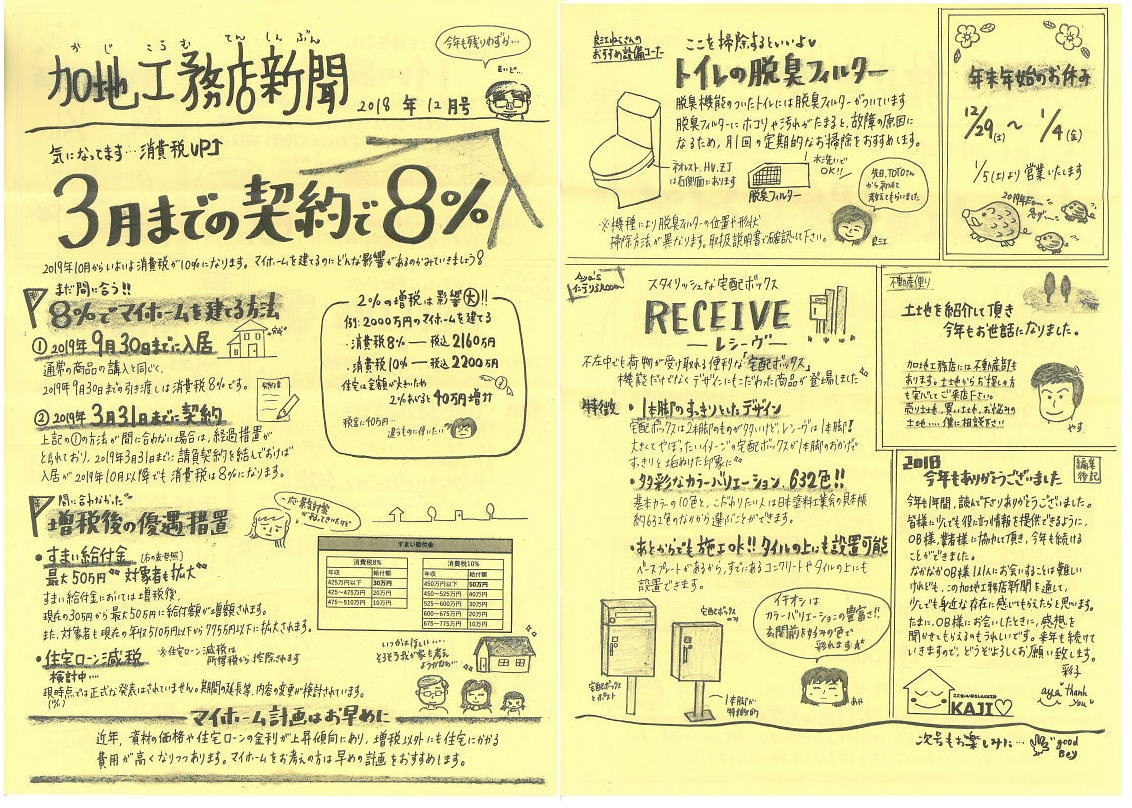 かじ こうむ てんしんぶん
加地工務店新聞
2018年12月号
今年も残りわずか…
気になってます…消費税UP↑
3月までの契約で8%
2019年10月からいよいよ消費税が10%になります。マイホームを建てるのにどんな影響があるのかみていきましょう!
まだ間に合う!!
8%でマイホームを建てる方法
① 2019年9月30日までに入居
通常の商品の購入と同じく、
2019年9月30日までの引き渡しは消費税8%です。
② 2019年3月31日までに契約
契約書
上記の①の方法が間に合わない場合は、経過措置が
とられており、2019年3月31日までに請負契約を結んでおけば
入居が2019年10月以降でも消費税は8%になります。
2%の増税は影響大!!
例:2000万円のマイホームを建てる
・消費税8% ― 税込2160万円
・消費税10% ― 税込2200万円
住宅は金額が大きいため
2%あがると40万円増!!
税金に40万円…
違うものに使いたい
間に合わなかった
増税後の優遇措置
・すまい給付金 (右の表参照)
最大50万円 対象者も拡大
すまい給付金においては増税後、
現在の30万円から最大50万円に給付額が増額されます。
また、対象者も現在の年収510万円以下から775万円以下に拡大されます。
すまい給付金
消費税8% 消費税10%
年収 給付額 年収 給付額
425万円以下 30万円 450万円以下 50万円
425~475万円 20万円 450~525万円 40万円
475~510万円 10万円 525~600万円 30万円
600~675万円 20万円
675~775万円 10万円
・住宅ローン減税 ※住宅ローン減税は
所得税から控除されます
検討中…
現時点では正式な発表はされていません。期間の延長等、内容の変更が検討されています。
いつかは欲しい…
そろそろ我が家も考え
ようかなぁ
マイホーム計画はお早めに
近年、資材の価格や住宅ローンの金利が上昇傾向にあり、増税以外にも住宅にかかる
費用が高くなりつつあります。マイホームをお考えの方は早めの計画をおすすめします。
おすすめ設備コーナー
ここを掃除するといいよ
トイレの脱臭フィルター
脱臭機能のついたトイレには脱臭フィルターがついています
脱臭フィルターにホコリや汚れがたまると、故障の原因に
なるため、月1回の定期的なお掃除をおすすめします。
ネオレスト、HV、ZJ
は右側面にあります
脱臭フィルター
水洗いで
OK!!
先日、TOTOさん
から初めて
教えてもらいました
良江
※機種により脱臭フィルターの位置や形状、
掃除方法が異なります。取扱説明書で確認して下さい。
年末年始のお休み
12/29(土) ~ 1/4(金)
1/5(土)より営業いたします
Aya's
インテリアroom
スタイリッシュな宅配ボックス
RECEIVE
―レシーヴ―
不在中でも荷物が受け取れる便利な「宅配ボックス」
機能だけでなくデザインにもこだわった商品が登場しました
特徴
・1本脚のすっきりとしたデザイン
宅配ボックスは2本脚のものが多いけど、レシーヴは1本脚!
大きくてやぼったいイメージの宅配ボックスが1本脚のおかげで
すっきりと垢ぬけた印象に
・多彩なカラーバリエーション632色!!
基本カラーの10色と、こだわりたい人は日本塗料工業会の見本帳
約632色のなかから選ぶことができます。
・あとからでも施工OK!! タイルの上にも設置可能
ベースプレートがあるから、すでにあるコンクリートやタイルの上にも
設置できます。
宅配ボックス
とポスト
宅配ボックス
のみ
1本脚が
特徴的
イチオシは
カラーバリエーションの豊富さ!!
玄関前をお好みの色で
彩れます
あや
不動産便り
土地を紹介して頂き
今年もお世話になりました。
加地工務店には不動産部も
あります。土地からお探しの方
も安心してご来店下さい。
売り土地、買い土地、お悩みの
土地…何でも相談下さい!
やす
2018
今年もありがとうございました
編集後記
今年も1年間、読んで下さりありがとうございました。
皆様に少しでも役に立つ情報を提供できるように、
OB様、業者様に協力して頂き、今年も続ける
ことができました。
なかなかOB様1人1人にお会いすることは難しい
けれども、この加地工務店新聞を通して、
少しでも身近な存在に感じてもらえたらと思います。
たまに、OB様にお会いしたときに、感想を
聞かせてもらえるのもうれしいです。来年も続けて
いきますので、どうぞよろしくお願い致します。
彩子
KAJI
aya thank
you
次号もお楽しみに…
good
Bey